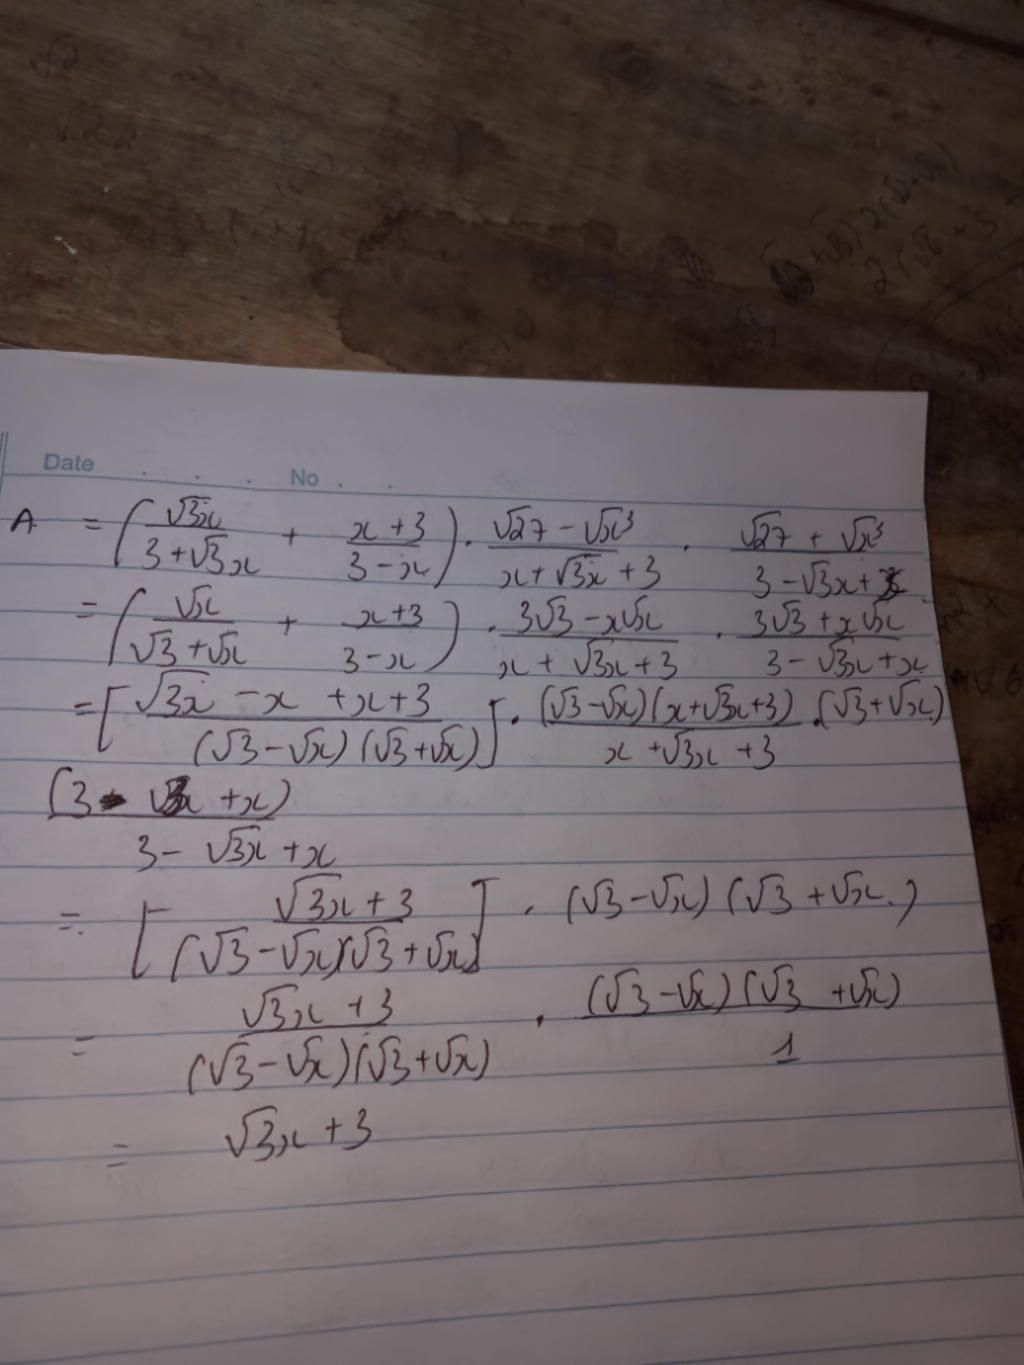 Date No
A = (√3x / (3 + √3x) + (x + 3) / (3 - x)) . (√27 - √x³) / (x + √3x + 3) . (√27 + √x³) / (3 - √3x + x)
= (√x / (√3 + √x) + (x + 3) / (3 - x)) . (3√3 - x√x) / (x + √3x + 3) . (3√3 + x√x) / (3 - √3x + x)
= [(√3x - x + x + 3) / ((√3 - √x)(√3 + √x))] . (√3 - √x)(x + √3x + 3) / (x + √3x + 3) . (√3 + √x)
(3 - √3x + x) / (3 - √3x + x)
= [(√3x + 3) / ((√3 - √x)(√3 + √x))] . (√3 - √x)(√3 + √x)
= (√3x + 3) / ((√3 - √x)(√3 + √x)) . (√3 - √x)(√3 + √x) / 1
= √3x + 3